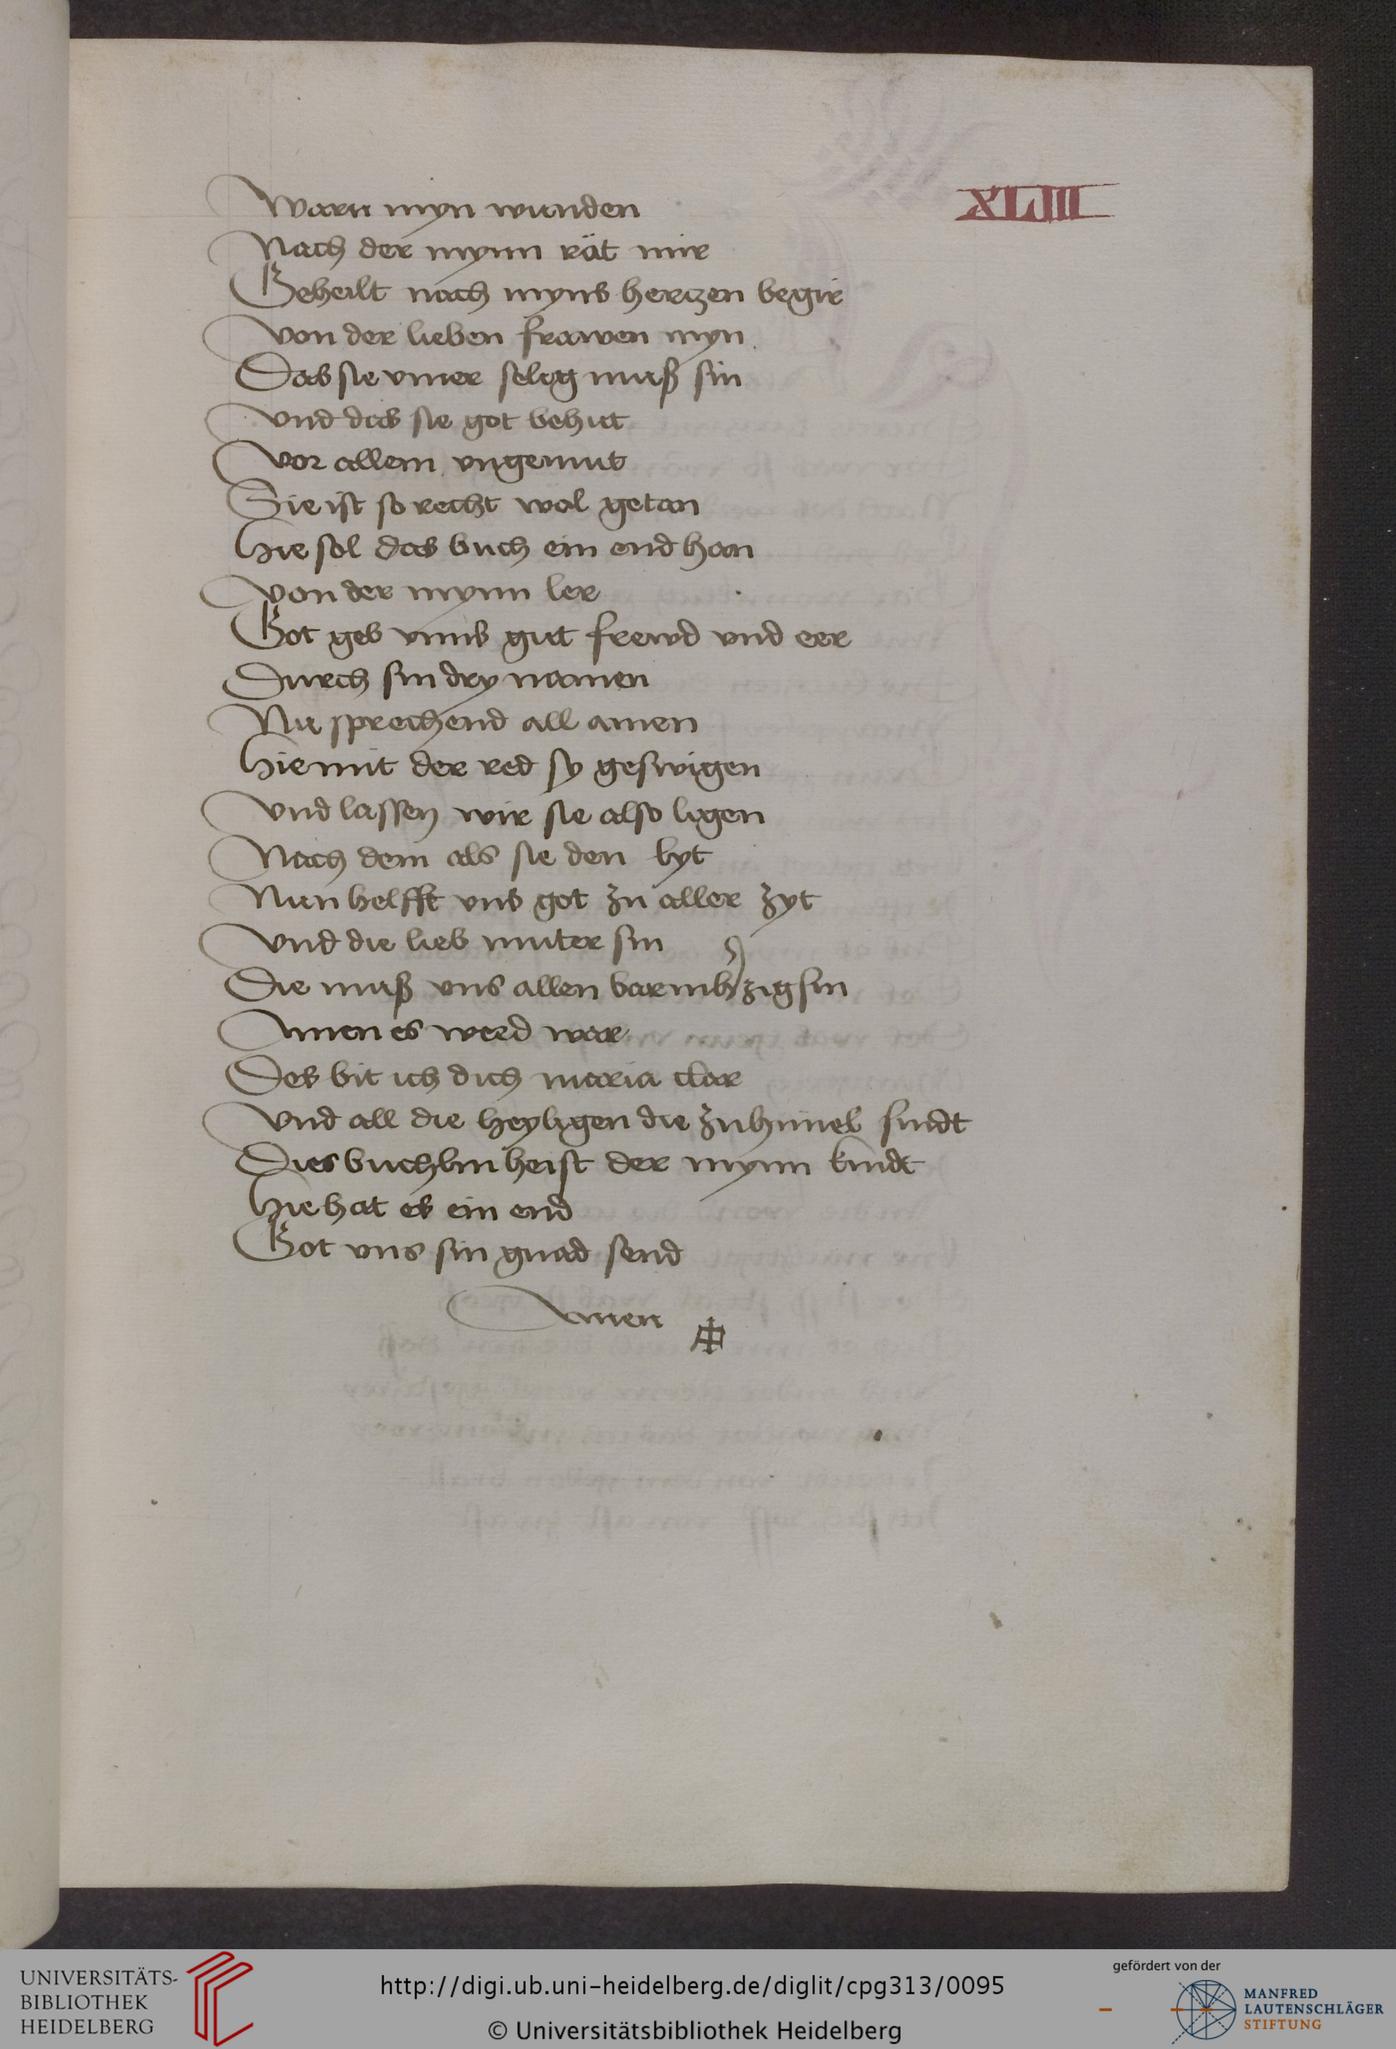 XLIII
Warn myn wunden
Nach der mynn rät mir
Geheilt nach myns hertzen begir
Von der lieben frawen myn
Das sie ymer selig muß sin
Vnd das sie got behut
Vor allem vngemut
Sie ist so recht wol getan
Hie sol das buch ein end han
Von der mynn ler
Got geb vnns gut frewd vnd eer
Durch sin dry namen
Nu sprechend all amen
Hie mit der red sy geswigen
Vnd lassen wir sie also ligen
Nach dem als sie den lyt
Nun helfft vns got zu aller zyt
Vnd die lieb muter sin
Die muß vns allen barmhzig sin
Amen es werd war
Des bit ich dich maria clar
Vnd all die heyligen die zu himel sindt
Dies buchlin heist der mynn kindt
Hie hat es ein end
Got vns sin gnad send
Amen
UNIVERSITÄTS-
BIBLIOTHEK
HEIDELBERG
http://digi.ub.uni-heidelberg.de/diglit/cpg313/0095
© Universitätsbibliothek Heidelberg
gefördert von der
MANFRED
LAUTENSCHLÄGER
STIFTUNG